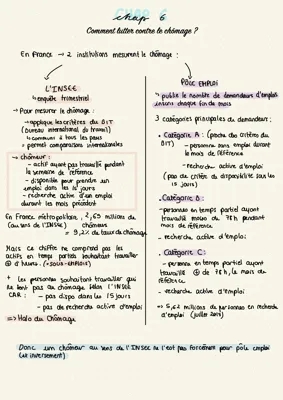 chap 6
Comment lutter contre le chômage ?
En France → 2 institutions mesurent le chômage :
L'INSEE
↳ enquête trimestriel
→ Pour mesurer le chômage :
→ applique les critères du BIT
(bureau international du travail)
→ commun à tous les pays
↳ permet comparaisons internationales
→ chômeur :
- actif ayant pas travaillé pendant
la semaine de référence
- disponible pour prendre un
emploi dans les 15 jours
- recherche active d'un emploi
durant les mois précédent
En France métropolitaine, 2,65 millions de
(au sens de l'INSEE) chômeurs
= 9,2% de taux de chômage
Mais ce chiffre ne comprend pas les
actifs en temps partiel souhaitant travailler
⊕ d'heures. (=sous-emploi)
+ les personnes souhaitant travailler qui
ne sont pas au chômage selon l'INSEE
CAR : - pas dispo dans les 15 jours
- pas de recherche active d'emploi
=> Halo du chômage
POLE EMPLOI
↳ publie le nombre de demandeurs d'emploi
inscrit chaque fin de mois
3 catégories principales de demandeur :
- Catégorie A : (proche des critères du
BIT)
- personnes sans emploi durant
le mois de référence
- recherche active d'emploi
(pas de critère de disponibilité sous les
15 jours)
- Catégorie B :
- personnes en temps partiel ayant
travaillé moins de 78h pendant
mois de référence
- recherche active d'emploi
- Catégorie C :
- personne en temps partiel ayant
travaillé ⊕ de 78h, le mois de
référence
- recherche active d'emploi
=> 5,62 millions de personnes en recherche
d'emploi (juillet
Donc un chômeur au sens de l'INSEE ne l'est pas forcément pour pôle emploi
(et inversement)